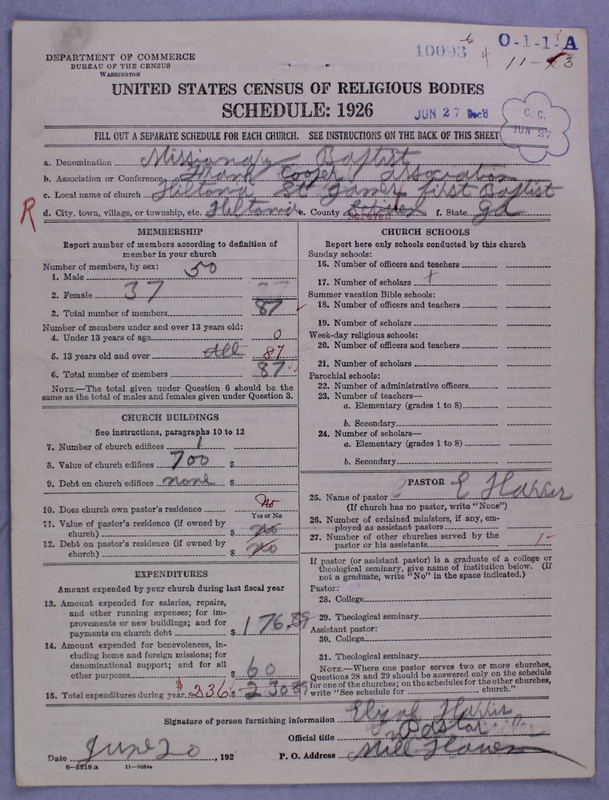 DEPARTMENT OF COMMERCE
BUREAU OF THE CENSUS
WASHINGTON
10093
4
O-1-1-A
11-
UNITED STATES CENSUS OF RELIGIOUS BODIES
SCHEDULE: 1926
JUN 27
C. C.
JUN 27
FILL OUT A SEPARATE SCHEDULE FOR EACH CHURCH. SEE INSTRUCTIONS ON THE BACK OF THIS SHEET
a. Denomination Missionary Baptist
b. Association or Conference Frank Cooper association
c. Local name of church Hiltonia St James first Baptist
R
d. City, town, village, or township, etc. Hiltonia e. County f. State Ga
MEMBERSHIP
Report number of members according to definition of
member in your church
Number of members, by sex:
1. Male 50
2. Female 37
3. Total number of members 87
Number of members under and over 13 years old:
4. Under 13 years of age 0
5. 13 years old and over all 87
6. Total number of members 87
NOTE.—The total given under Question 6 should be the
same as the total of males and females given under Question 3.
CHURCH BUILDINGS
See instructions, paragraphs 10 to 12
7. Number of church edifices 1
8. Value of church edifices 700 $
9. Debt on church edifices none $
10. Does church own pastor's residence No
Yes or No
11. Value of pastor's residence (if owned by
church) $ no
12. Debt on pastor's residence (if owned by
church) $ no
EXPENDITURES
Amount expended by your church during last fiscal year
13. Amount expended for salaries, repairs,
and other running expenses; for im-
provements or new buildings; and for
payments on church debt $ 176.89
14. Amount expended for benevolences, in-
cluding home and foreign missions; for
denominational support; and for all
other purposes $ 60
15. Total expenditures during year $236.
CHURCH SCHOOLS
Report here only schools conducted by this church
Sunday schools:
16. Number of officers and teachers
17. Number of scholars
Summer vacation Bible schools:
18. Number of officers and teachers
19. Number of scholars
Week-day religious schools:
20. Number of officers and teachers
21. Number of scholars
Parochial schools:
22. Number of administrative officers
23. Number of teachers—
a. Elementary (grades 1 to 8)
b. Secondary
24. Number of scholars—
a. Elementary (grades 1 to 8)
b. Secondary
PASTOR
25. Name of pastor E
(If church has no pastor, write "None")
26. Number of ordained ministers, if any, em-
ployed as assistant pastors
27. Number of other churches served by the
pastor or his assistants 1-
If pastor (or assistant pastor) is a graduate of a college or
theological seminary, give name of institution below. (If
not a graduate, write "No" in the space indicated.)
Pastor:
28. College
29. Theological seminary
Assistant pastor:
30. College
31. Theological seminary
NOTE.—Where one pastor serves two or more churches,
Questions 28 and 29 should be answered only on the schedule
for one of the churches; on the schedules for the other churches,
write "See schedule for church."
Signature of person furnishing information
Official title Pastor
Date June 20, 192 P. O. Address Mill Haven
8-6518a 11-8684